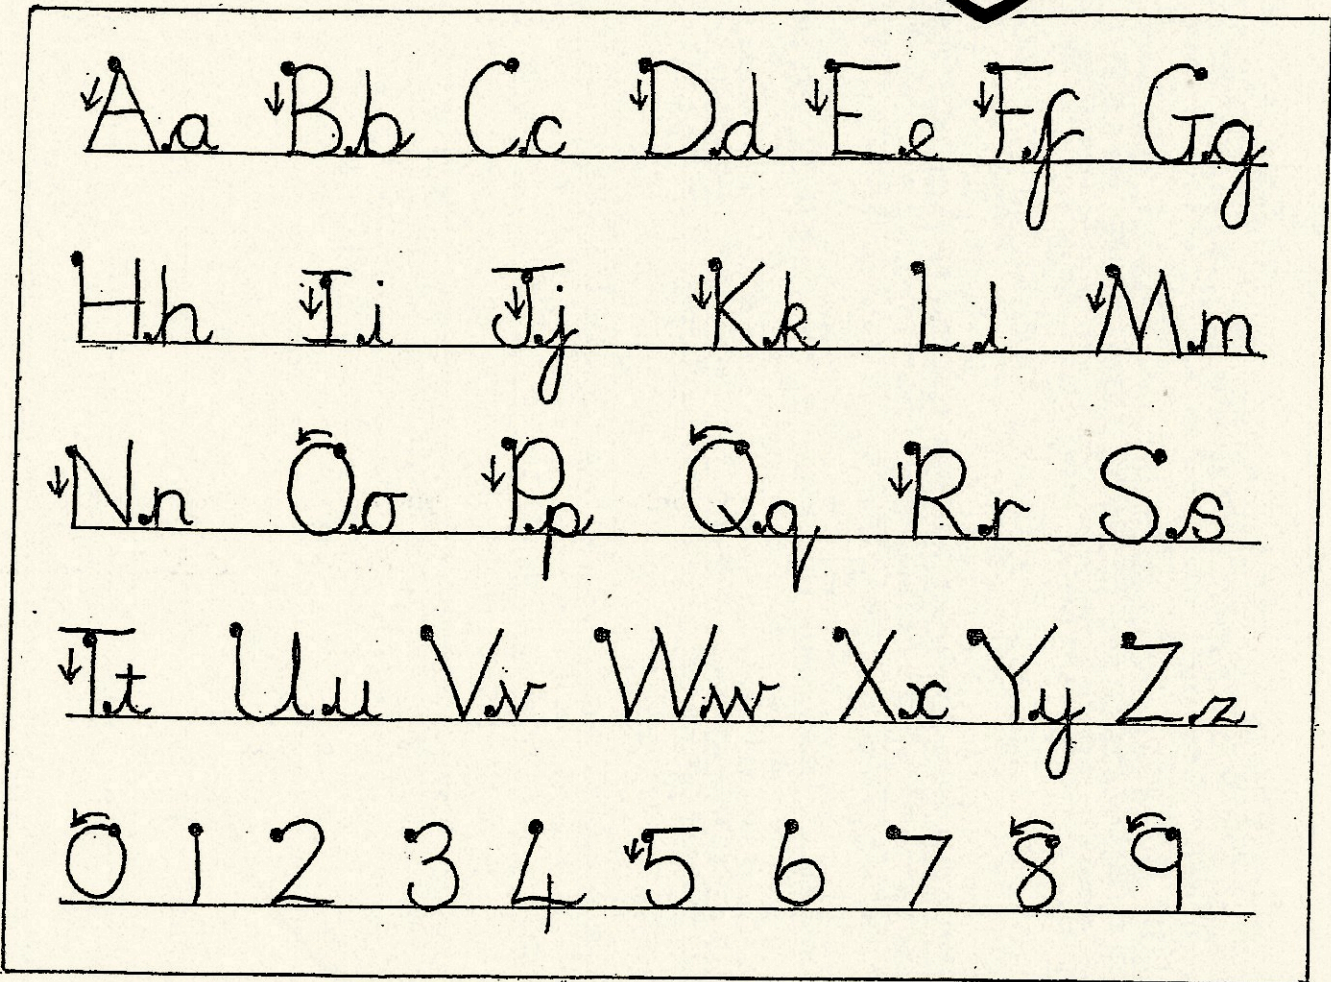 Aa Bb Cc Dd Ee Ff Gg
Hh Ii Jj Kk Ll Mm
Nn Oo Pp Qq Rr Ss
Tt Uu Vv Ww Xx Yy Zz
0 1 2 3 4 5 6 7 8 9